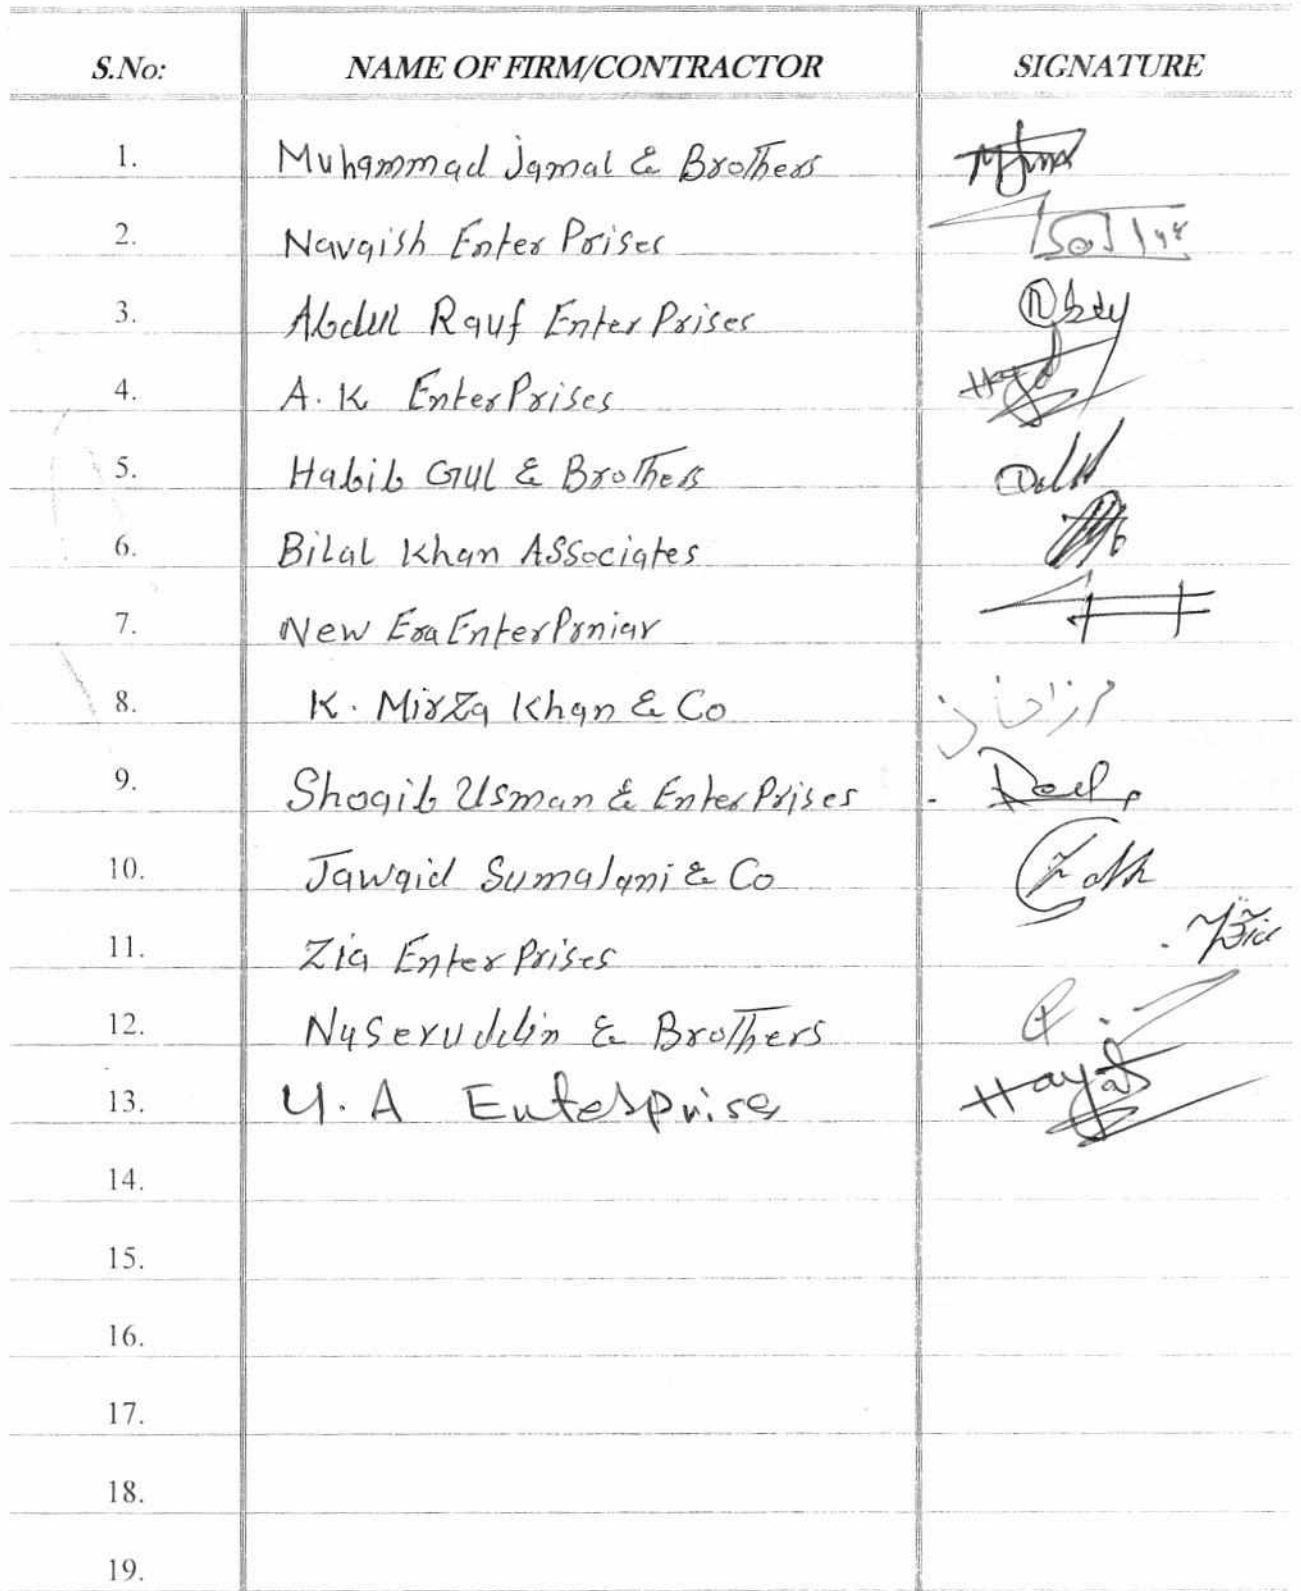 S.No: NAME OF FIRM/CONTRACTOR SIGNATURE
1. Muhammad Jamal & Brothers
2. Navaish EnterPrises
3. Abdul Rauf EnterPrises
4. A.K EnterPrises
5. Habib Gul & Brothers
6. Bilal Khan ASSociates
7. New Era EnterPrniar
8. K. Mirza Khan & Co مرزا خان
9. Shoaib Usman & EnterPrises
10. Jawaid Sumalani & Co
11. Zia EnterPrises Zia
12. Naseruddin & Brothers
13. U.A Enterprises Hayat
14.
15.
16.
17.
18.
19.